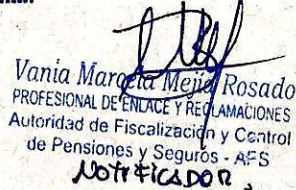 Vania Marcela Mejía Rosado
PROFESIONAL DE ENLACE Y RECLAMACIONES
Autoridad de Fiscalización y Control
de Pensiones y Seguros - APS
NOTIFICADOR